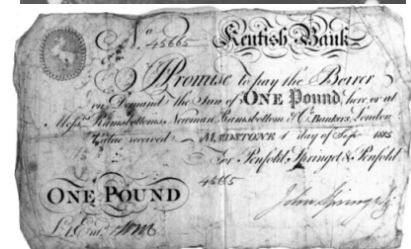 No 45665 Kentish Bank
I Promise to pay the Bearer
on Demand the Sum of ONE Pound, here or at
Messrs Ramsbottoms, Newman, Ramsbottom & Co. Bankers, London
Value received MAIDSTONE 1 day of Sepr
For Penfold, Springet & Penfold
45665
ONE POUND
John Springet